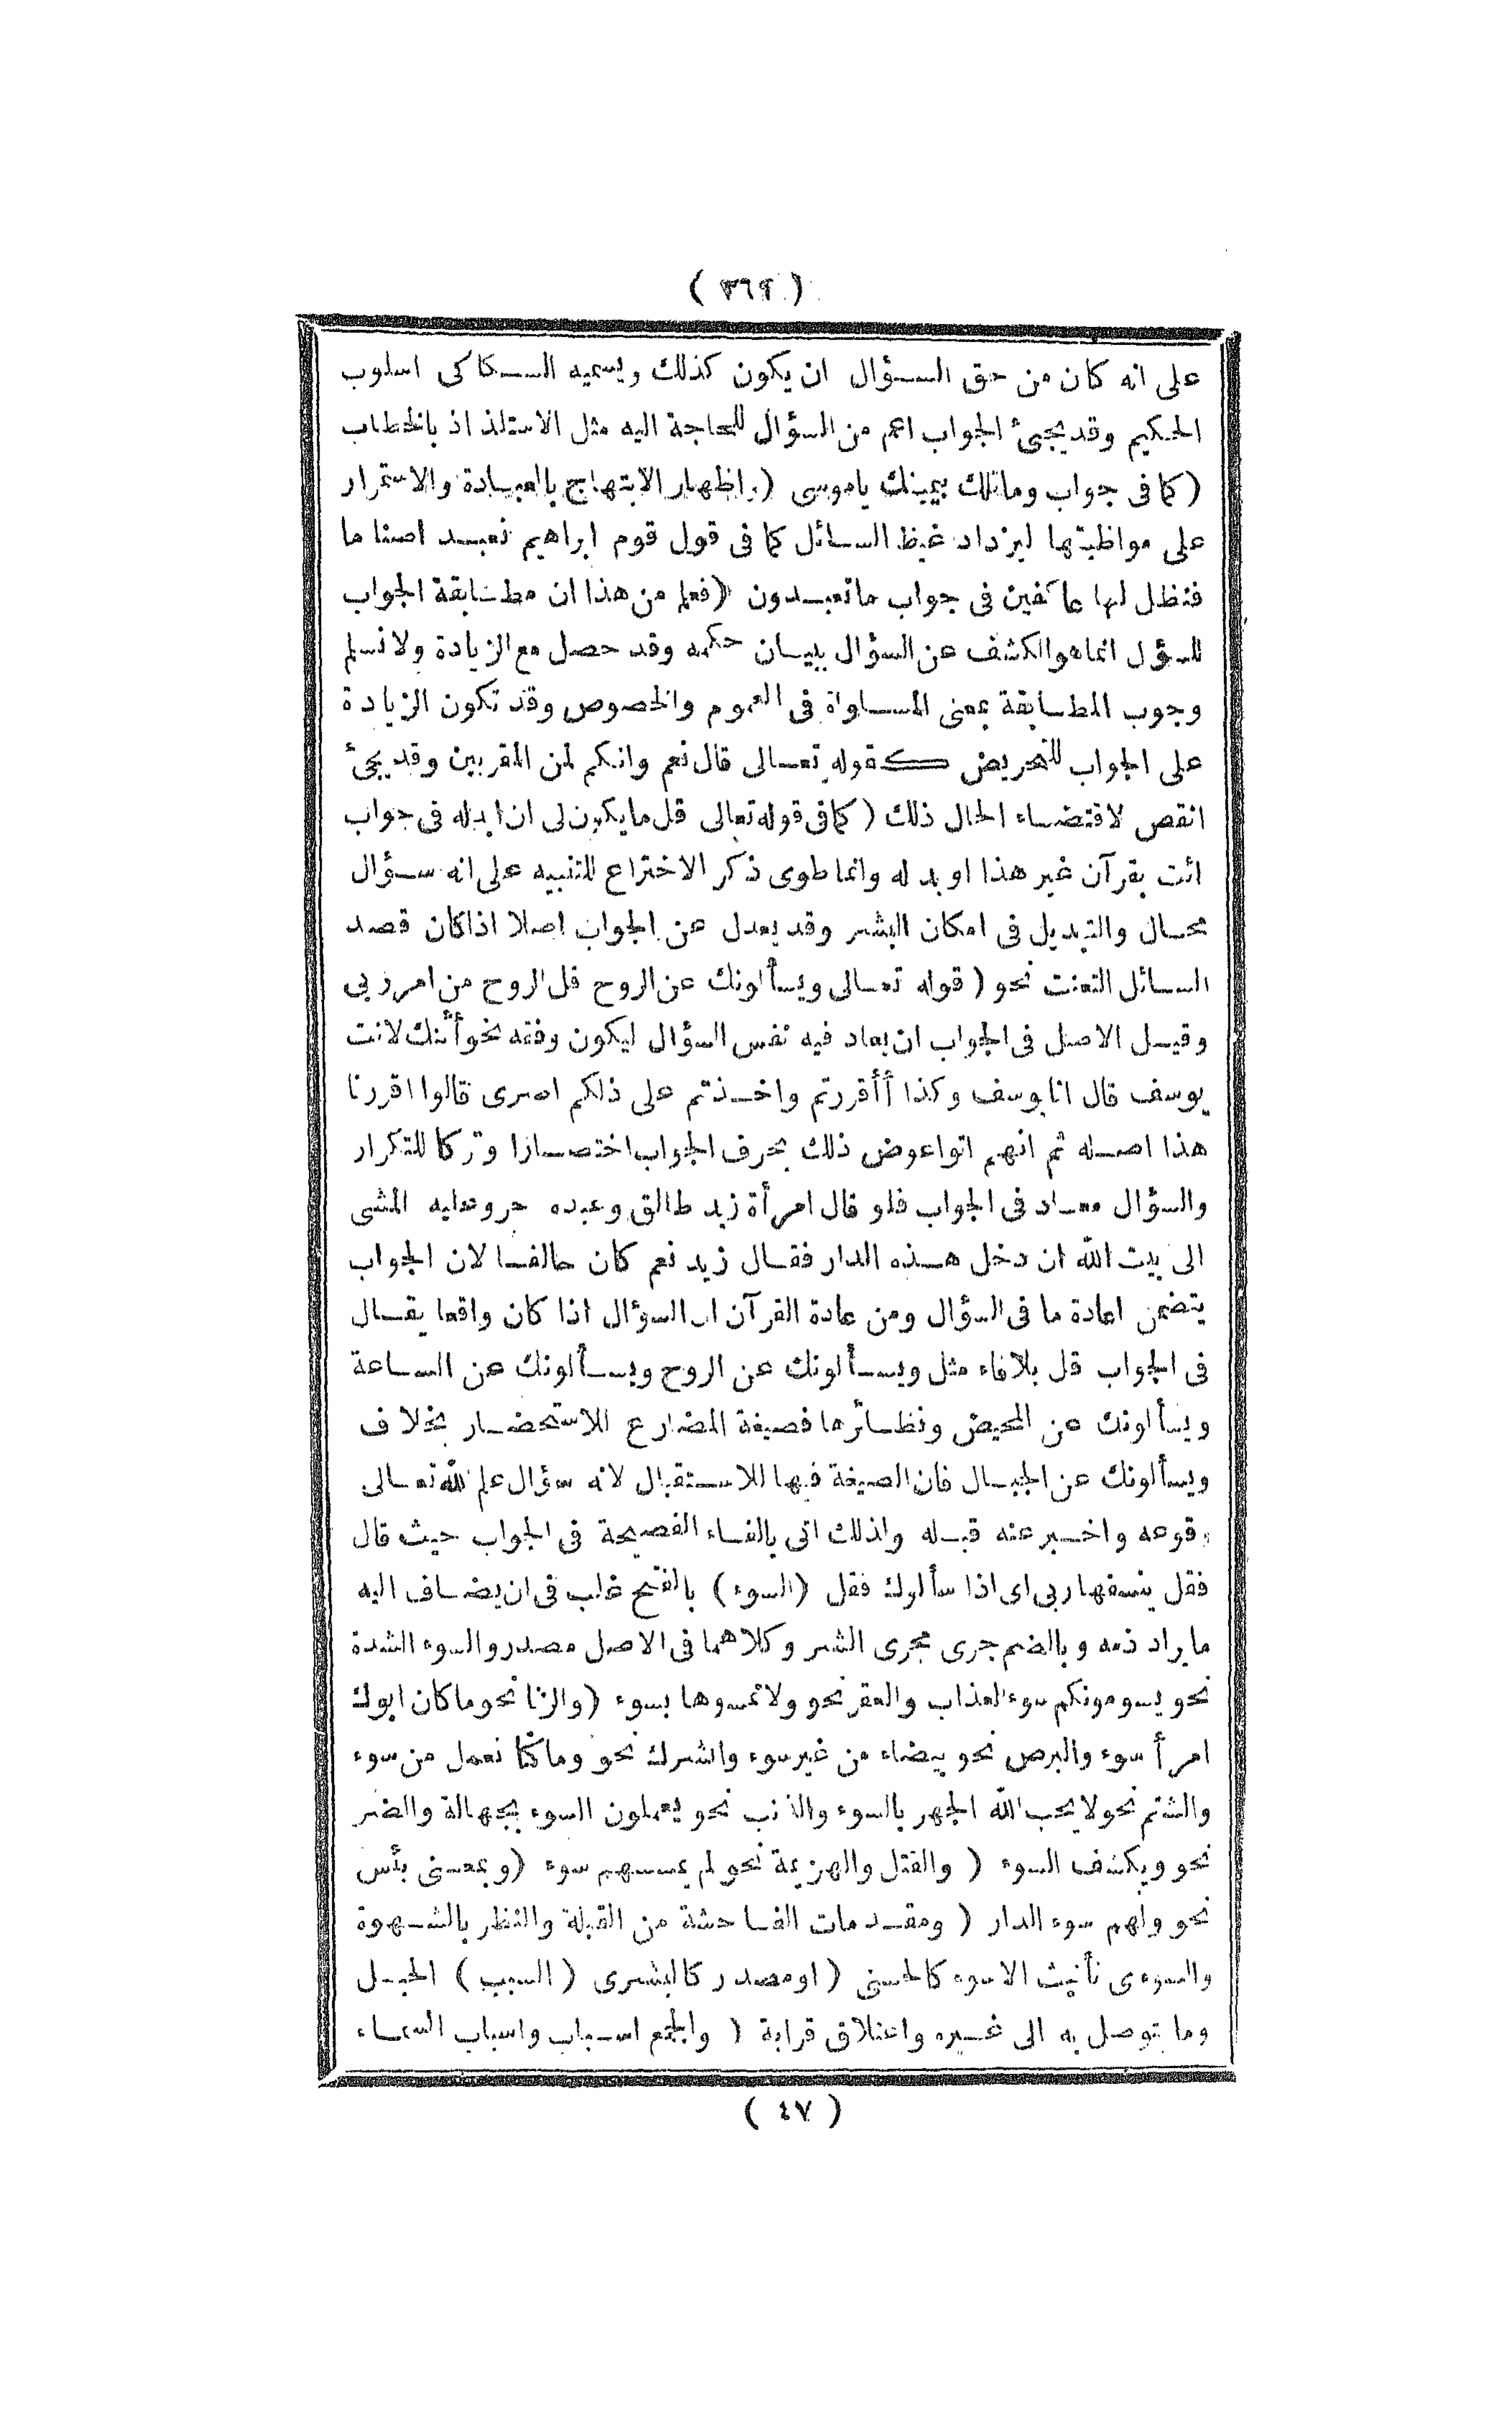 ( ٣٦٩ )
على انه كان من حق السؤال ان يكون كذلك ويسميه السكاكى اسلوب
الحكيم وقد يجيئ الجواب اعم من السؤال للحاجة اليه مثل الاستلذاذ بالخطاب
(كما فى جواب وماتلك بيمينك ياموسى (واظهار الابتهاج بالعبادة والاستمرار
على مواظبتها ليزداد غيظ السائل كما فى قول قوم ابراهيم نعبد اصناما
فنظل لها عاكفين فى جواب ماتعبدون (فعلم من هذا ان مطابقة الجواب
للسؤل انماهوالكشف عن السؤال ببيان حكمه وقد حصل مع الزيادة ولانسلم
وجوب المطابقة بمعنى المساواة فى العموم والخصوص وقد تكون الزيادة
على الجواب للتحريض كقوله تعالى قال نعم وانكم لمن المقربين وقد يجئ
انقص لاقتضاء الحال ذلك (كمافى قوله تعالى قل مايكون لى ان ابدله فى جواب
ائت بقرآن غير هذا او بدله وانما طوى ذكر الاختراع للتنبيه على انه سؤال
محال والتبديل فى امكان البشر وقد يعدل عن الجواب اصلا اذاكان قصد
السائل التعنت نحو (قوله تعالى ويسألونك عن الروح قل الروح من امر ربى
وقيل الاصل فى الجواب ان يعاد فيه نفس السؤال ليكون وفقه نحو أئنك لانت
يوسف قال انا يوسف وكذا أأقررتم واخذتم على ذلكم اصرى قالوا اقررنا
هذا اصله ثم انهم اتوا عوض ذلك بحرف الجواب اختصارا وتركا للتكرار
والسؤال معاد فى الجواب فلو قال امرأة زيد طالق وعبده حر وعليه المشى
الى بيت الله ان دخل هذه الدار فقال زيد نعم كان حالفا لان الجواب
يتضمن اعادة ما فى السؤال ومن عادة القرآن ان السؤال اذا كان واقعا يقال
فى الجواب قل بلافاء مثل ويسألونك عن الروح ويسألونك عن الساعة
ويسألونك عن المحيض ونظائرها فصيغة المضارع للاستحضار بخلاف
ويسألونك عن الجبال فان الصيغة فيها للاستقبال لانه سؤال علم الله تعالى
وقوعه واخبر عنه قبله ولذلك اتى بالفاء الفصيحة فى الجواب حيث قال
فقل ينسفها ربى اى اذا سألوك فقل (السوء) بالفتح غلب فى ان يضاف اليه
ما يراد ذمه وبالضم جرى مجرى الشر وكلاهما فى الاصل مصدر والسوء الشدة
نحو يسومونكم سوء العذاب والعقر نحو ولاتمسوها بسوء (والزنا نحو ماكان ابوك
امرأ سوء والبرص نحو بيضاء من غير سوء والشرك نحو وما كنا نعمل من سوء
والشتم نحو لا يحب الله الجهر بالسوء والذنب نحو يعملون السوء بجهالة والضر
نحو ويكشف السوء (والقتل والهزيمة نحو لم يمسسهم سوء (وبمعنى بئس
نحو ولهم سوء الدار (ومقدمات الفاحشة من القبلة والنظر بالشهوة
والسوءى تأنيث الاسوء كالحسنى (او مصدر كالبشرى (السبب) الحبل
وما يتوصل به الى غيره واعتلاق قرابة (والجمع اسباب واسباب السماء
( ٤٧ )